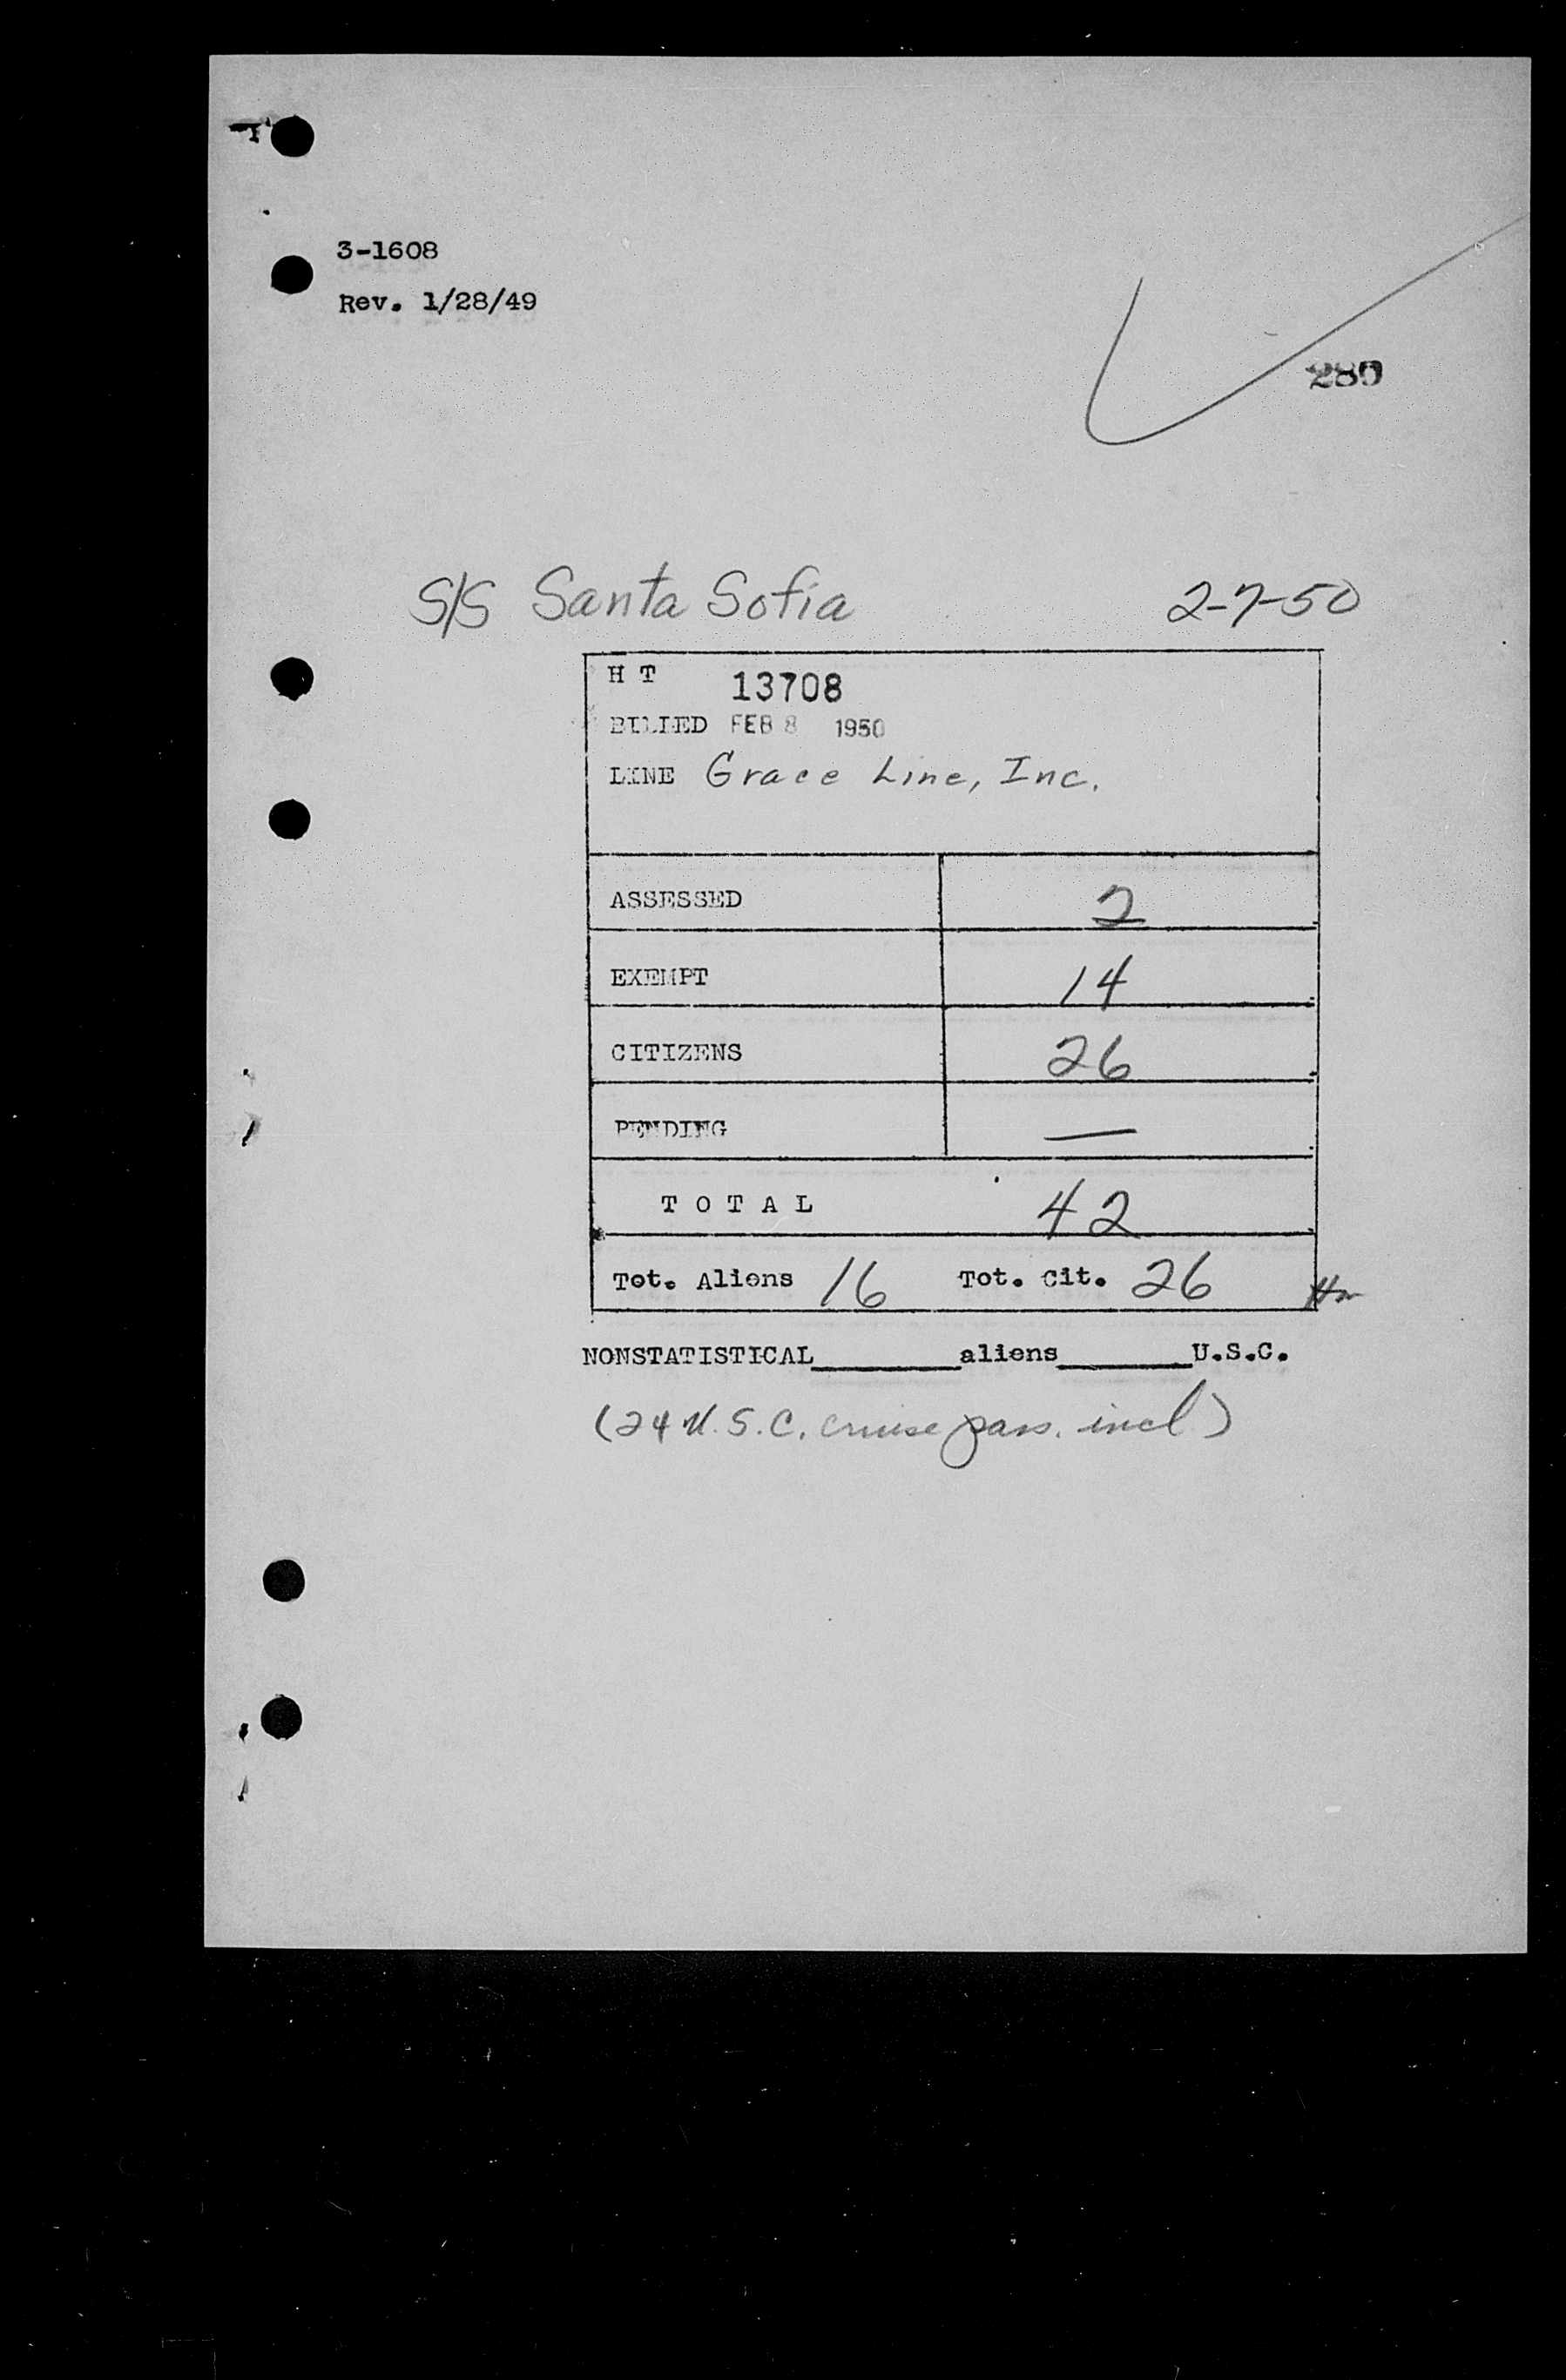 3-1608
Rev. 1/28/49
S/S Santa Sofia 2-7-50
H T 13708
BILLED FEB 8 1950
LINE Grace Line, Inc.
ASSESSED 2
EXEMPT 14
CITIZENS 26
PENDING —
T O T A L 42
Tot. Aliens 16 Tot. Cit. 26
NONSTATISTICAL________aliens________U.S.C.
(24 U.S.C. cruise pass. incl)